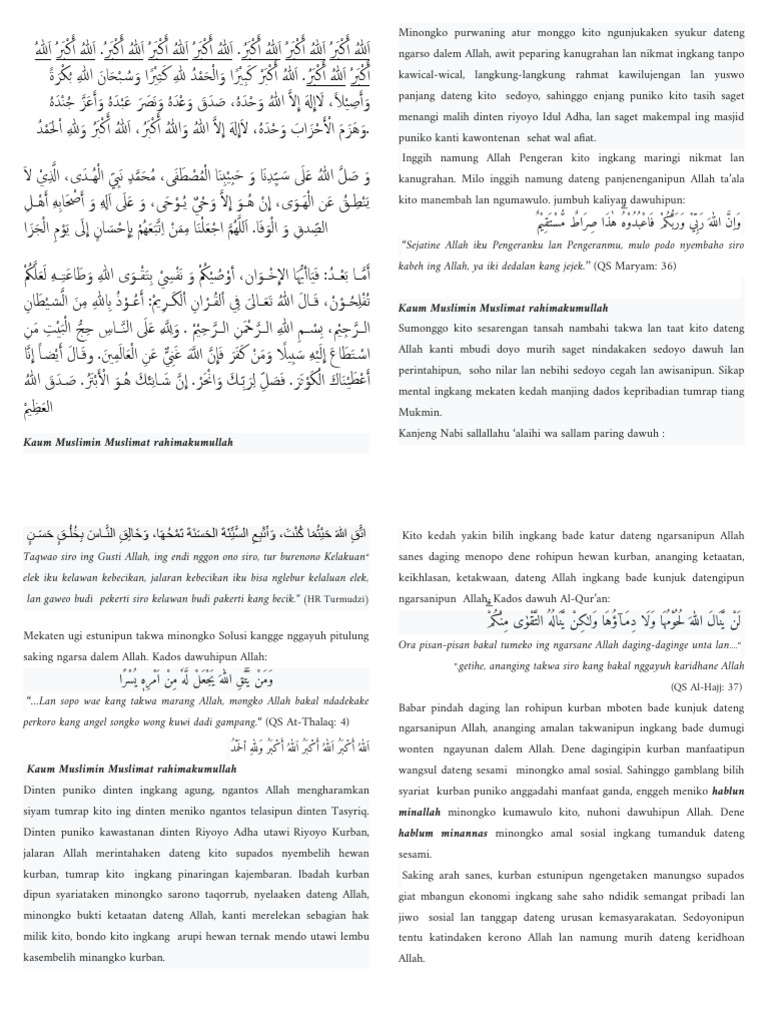 اَللهُ أَكْبَرُ. اَللهُ أَكْبَرُ اَللهُ أَكْبَرُ. اَللهُ أَكْبَرُ اَللهُ أَكْبَرُ اَللهُ أَكْبَرُ. اَللهُ أَكْبَرُ اَللهُ
أَكْبَرُ اَللهُ أَكْبَرُ. اَللهُ أَكْبَرُ كَبِيْرًا وَالْحَمْدُ للهِ كَثِيْرًا وَسُبْحَانَ اللهِ بُكْرَةً
وَأَصِيْلاً، لَاإِلهَ إِلاَّ اللهُ وَحْدَهُ، صَدَقَ وَعْدَهُ وَنَصَرَ عَبْدَهُ وَأَعَزَّ جُنْدَهُ
.وَهَزَمَ الْأَحْزَابَ وَحْدَهُ، لَاإِلهَ إِلاَّ اللهُ وَاللهُ أَكْبَرُ، اَللهُ أَكْبَرُ وَللهِ اْلحَمْدُ
وَ صَلَّ اللهُ عَلَى سَيِّدِنَا وَ حَبِيْبِنَا الْمُصْطَفَى، مُحَمَّدٍ نَبِيِّ الْهُدَى، الَّذِيْ لاَ
يَنْطِقُ عَنِ الْهَوَى، إِنْ هُوَ إِلاَّ وَحْيٌ يُوْحَى، وَ عَلَى آلِهِ وَ أَصْحَابِهِ أَهْلِ
الصِّدقِ وَ الْوَفَا. اَللَّهُمَّ اجْعَلْنَا مِمَنْ اِتَّبَعَهُمْ بِإِحْسَانٍ إِلَى يَوْمِ الْجَزَا
أَمَّا بَعْدُ: فَيَاأَيُّهَا الإِخْوَان، أُوْصِيْكُمْ وَ نَفْسِيْ بِتَقْوَى اللهِ وَطَاعَتِهِ لَعَلَّكُمْ
تُفْلِحُوْنْ، قَالَ اللهُ تَعَالَى فِي اْلقُرْانِ اْلكَرِيمْ: أَعُوْذُ بِاللهِ مِنَ الشَّيْطَانِ
الرَّجِيْم، بِسْمِ اللهِ الرَّحْمَنِ الرَّحِيْمْ . وَلِلَّهِ عَلَى النَّاسِ حِجُّ الْبَيْتِ مَنِ
اسْتَطَاعَ إِلَيْهِ سَبِيلًا وَمَنْ كَفَرَ فَإِنَّ اللَّهَ غَنِيٌّ عَنِ الْعَالَمِينَ. وقال أَيْضاً إِنَّا
أَعْطَيْنَاكَ الْكَوْثَرَ. فَصَلِّ لِرَبِّكَ وَانْحَرْ. إِنَّ شَانِئَكَ هُوَ الْأَبْتَرُ. صَدَقَ اللهُ
العَظِيْمْ
Kaum Muslimin Muslimat rahimakumullah
Minongko purwaning atur monggo kito ngunjukaken syukur dateng
ngarso dalem Allah, awit peparing kanugrahan lan nikmat ingkang tanpo
kawical-wical, langkung-langkung rahmat kawilujengan lan yuswo
panjang dateng kito sedoyo, sahinggo enjang puniko kito tasih saget
menangi malih dinten riyoyo Idul Adha, lan saget makempal ing masjid
puniko kanti kawontenan sehat wal afiat.
Inggih namung Allah Pengeran kito ingkang maringi nikmat lan
kanugrahan. Milo inggih namung dateng panjenenganipun Allah ta'ala
kito manembah lan ngumawulo. jumbuh kaliyan dawuhipun:
وَاِنَّ اللّٰهَ رَبِّيْ وَرَبُّكُمْ فَاعْبُدُوْهُ هٰذَا صِرَاطٌ مُّسْتَقِيْمٌ
“Sejatine Allah iku Pengeranku lan Pengeranmu, mulo podo nyembaho siro
kabeh ing Allah, ya iki dedalan kang jejek.” (QS Maryam: 36)
Kaum Muslimin Muslimat rahimakumullah
Sumonggo kito sesarengan tansah nambahi takwa lan taat kito dateng
Allah kanti mbudi doyo murih saget nindakaken sedoyo dawuh lan
perintahipun, soho nilar lan nebihi sedoyo cegah lan awisanipun. Sikap
mental ingkang mekaten kedah manjing dados kepribadian tumrap tiang
Mukmin.
Kanjeng Nabi sallallahu ‘alaihi wa sallam paring dawuh :
اتَّقِ اللهَ حَيْثُمَا كُنْتَ، وَأَتْبِعِ السَّيِّئَةَ الْحَسَنَةَ تَمْحُهَا، وَخَالِقِ النَّاسَ بِخُلُقٍ حَسَنٍ
Taqwao siro ing Gusti Allah, ing endi nggon ono siro, tur burenono Kelakuan“
elek iku kelawan kebecikan, jalaran kebecikan iku bisa nglebur kelaluan elek,
lan gaweo budi pekerti siro kelawan budi pakerti kang becik.” (HR Turmudzi)
Mekaten ugi estunipun takwa minongko Solusi kangge nggayuh pitulung
saking ngarsa dalem Allah. Kados dawuhipun Allah:
وَمَنْ يَّتَّقِ اللّٰهَ يَجْعَلْ لَّهٗ مِنْ اَمْرِهٖ يُسْرًا
“...Lan sopo wae kang takwa marang Allah, mongko Allah bakal ndadekake
perkoro kang angel songko wong kuwi dadi gampang.“ (QS At-Thalaq: 4)
اَللهُ أَكْبَرُ اَللهُ أَكْبَرُ اَللهُ أَكْبَرُ وَللهِ اْلحَمْدُ
Kaum Muslimin Muslimat rahimakumullah
Dinten puniko dinten ingkang agung, ngantos Allah mengharamken
siyam tumrap kito ing dinten meniko ngantos telasipun dinten Tasyriq.
Dinten puniko kawastanan dinten Riyoyo Adha utawi Riyoyo Kurban,
jalaran Allah merintahaken dateng kito supados nyembelih hewan
kurban, tumrap kito ingkang pinaringan kajembaran. Ibadah kurban
dipun syariataken minongko sarono taqorrub, nyelaaken dateng Allah,
minongko bukti ketaatan dateng Allah, kanti merelekan sebagian hak
milik kito, bondo kito ingkang arupi hewan ternak mendo utawi lembu
kasembelih minangko kurban.
Kito kedah yakin bilih ingkang bade katur dateng ngarsanipun Allah
sanes daging menopo dene rohipun hewan kurban, ananging ketaatan,
keikhlasan, ketakwaan, dateng Allah ingkang bade kunjuk datengipun
ngarsanipun Allah. Kados dawuh Al-Qur’an:
لَنْ يَّنَالَ اللّٰهَ لُحُوْمُهَا وَلَا دِمَاۤؤُهَا وَلٰكِنْ يَّنَالُهُ التَّقْوٰى مِنْكُمْ
Ora pisan-pisan bakal tumeko ing ngarsane Allah daging-daginge unta lan....“
“.getihe, ananging takwa siro kang bakal nggayuh karidhane Allah
(QS Al-Hajj: 37)
Babar pindah daging lan rohipun kurban mboten bade kunjuk dateng
ngarsanipun Allah, ananging amalan takwanipun ingkang bade dumugi
wonten ngayunan dalem Allah. Dene dagingipin kurban manfaatipun
wangsul dateng sesami minongko amal sosial. Sahinggo gamblang bilih
syariat kurban puniko anggadahi manfaat ganda, enggeh meniko hablun
minallah minongko kumawulo kito, nuhoni dawuhipun Allah. Dene
hablum minannas minongko amal sosial ingkang tumanduk dateng
sesami.
Saking arah sanes, kurban estunipun ngengetaken manungso supados
giat mbangun ekonomi ingkang sahe saho ndidik semangat pribadi lan
jiwo sosial lan tanggap dateng urusan kemasyarakatan. Sedoyonipun
tentu katindaken kerono Allah lan namung murih dateng keridhoan
Allah.